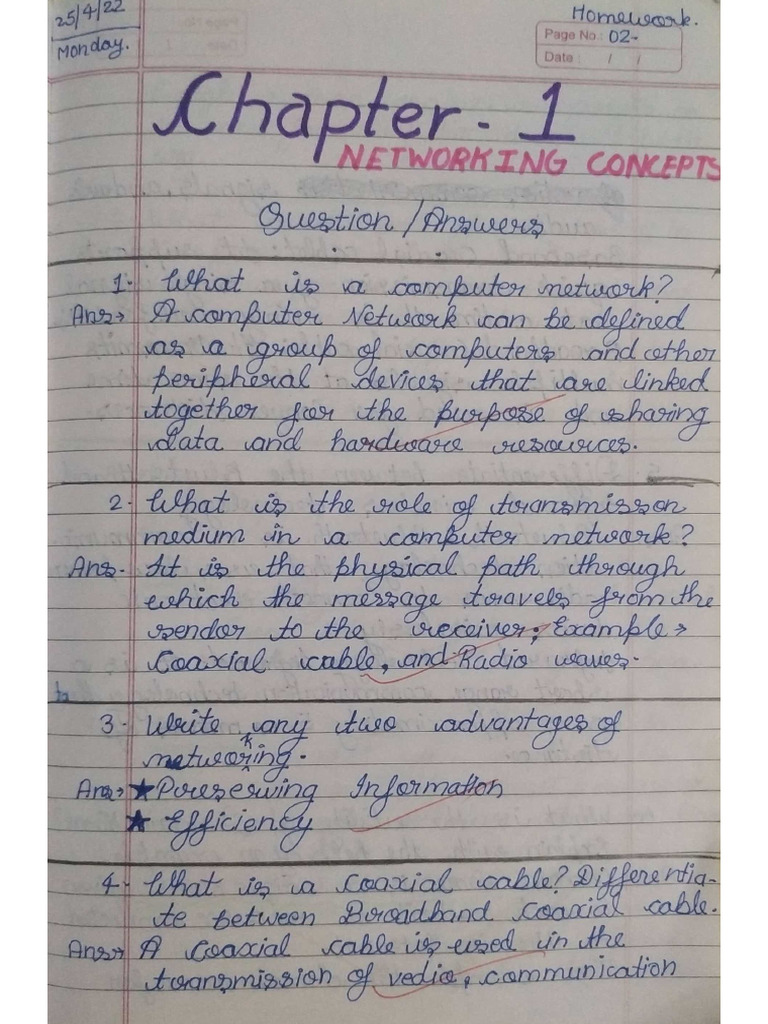 25/4/22
Monday.
Homework.
Page No.: 02-
Date : / /
Chapter - 1
NETWORKING CONCEPTS
Question / Answers
1. What is a computer network?
Ans→ A computer Network can be defined
as a group of computers and other
peripheral devices that are linked
together for the purpose of sharing
data and hardware resources.
2. What is the role of transmisson
medium in a computer network?
Ans. It is the physical path through
which the message travels from the
sendor to the receiver; Example→
Coaxial cable, and Radio waves.
3. Write any two advantages of
networking.
Ans→ ★ Preserving Information
★ Efficiency
4. What is a coaxial cable? Differentia-
te between Broadband coaxial cable.
Ans→ A coaxial cable is used in the
transmission of vedio, communication